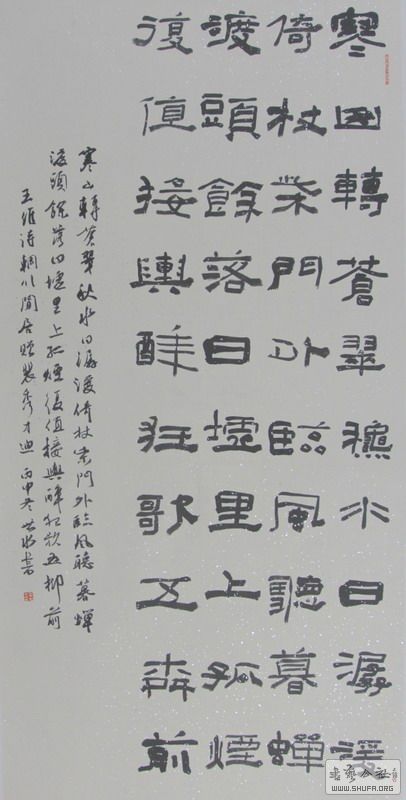 寒山轉蒼翠秋水日潺湲
倚杖柴門外臨風聽暮蟬
渡頭餘落日墟里上孤煙
復值接輿醉狂歌五柳前
寒山轉蒼翠秋水日潺湲倚杖柴門外臨風聽暮蟬
渡頭餘落日墟里上孤煙復值接輿醉狂歌五柳前
王維詩輞川閒居贈裴秀才迪 丙申冬 書
书艺公社
WWW.SHUFA.ORG